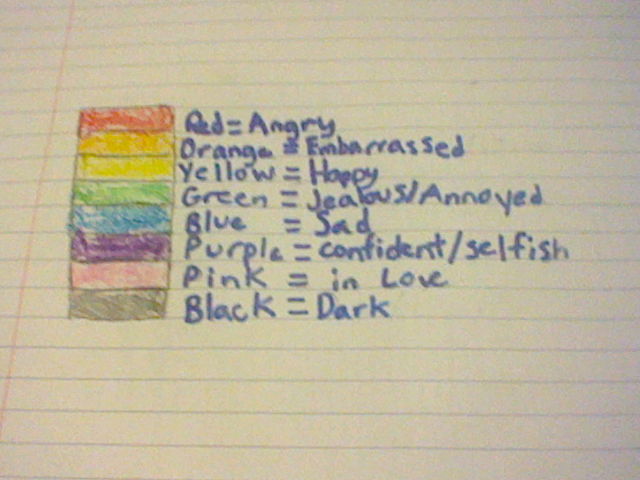 Red = Angry
Orange = Embarrassed
Yellow = Happy
Green = Jealous/Annoyed
Blue = Sad
Purple = confident/selfish
Pink = in Love
Black = Dark